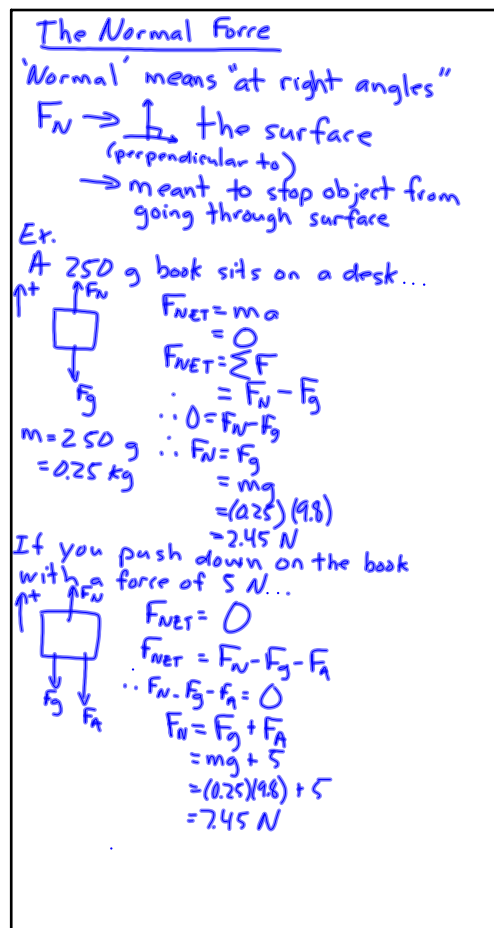 The Normal Force
'Normal' means "at right angles"
F_N → the surface
(perpendicular to)
→ meant to stop object from
going through surface
Ex.
A 250 g book sits on a desk...
+ F_N
F_g
m = 250 g
= 0.25 kg
F_NET = ma
= 0
F_NET = ΣF
= F_N - F_g
∴ 0 = F_N - F_g
∴ F_N = F_g
= mg
= (0.25)(9.8)
= 2.45 N
If you push down on the book
with a force of 5 N...
+ F_N
F_g F_A
F_NET = 0
F_NET = F_N - F_g - F_A
∴ F_N - F_g - F_A = 0
F_N = F_g + F_A
= mg + 5
= (0.25)(9.8) + 5
= 7.45 N